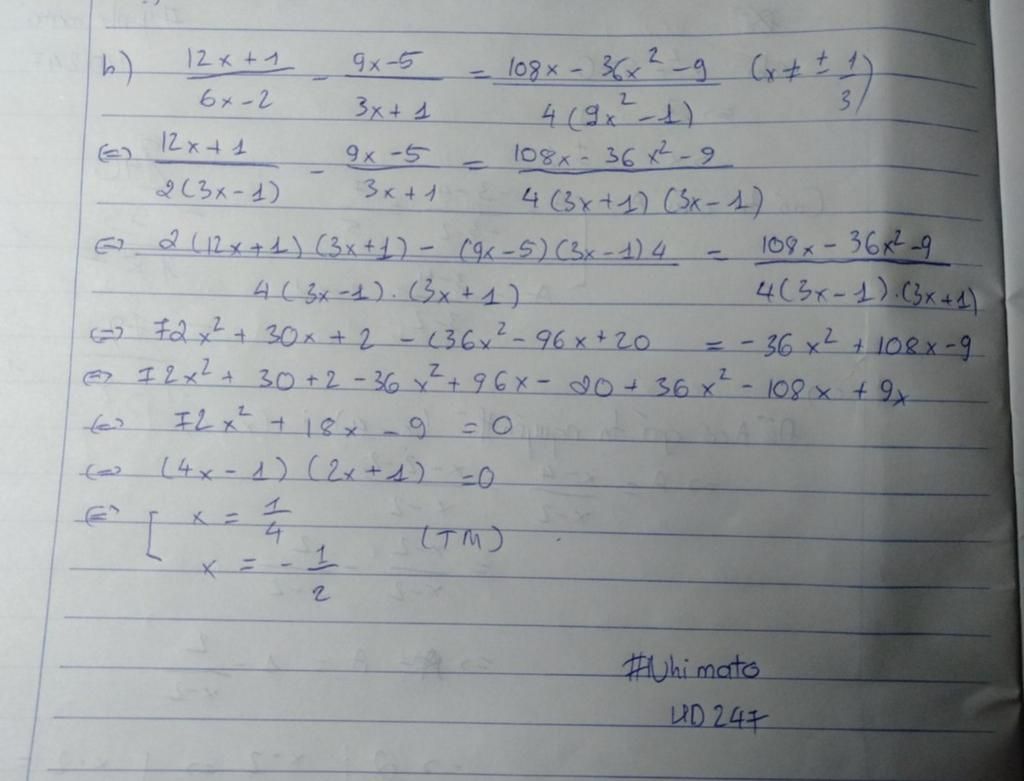 b) (12x+1)/(6x-2) - (9x-5)/(3x+1) = (108x - 36x² - 9)/(4(9x² - 1)) (x ≠ ± 1/3)
⇔ (12x+1)/(2(3x-1)) - (9x-5)/(3x+1) = (108x - 36x² - 9)/(4(3x+1)(3x-1))
⇔ (2(12x+1)(3x+1) - (9x-5)(3x-1)4)/(4(3x-1).(3x+1)) = (108x - 36x² - 9)/(4(3x-1).(3x+1))
⇔ 72x² + 30x + 2 - (36x² - 96x + 20 = - 36x² + 108x - 9
⇔ 72x² + 30 + 2 - 36x² + 96x - 20 + 36x² - 108x + 9x
⇔ 72x² + 18x - 9 = 0
⇔ (4x - 1)(2x + 1) = 0
⇔ [ x = 1/4
x = - 1/2 (TM)
#Nhi mato
UD247